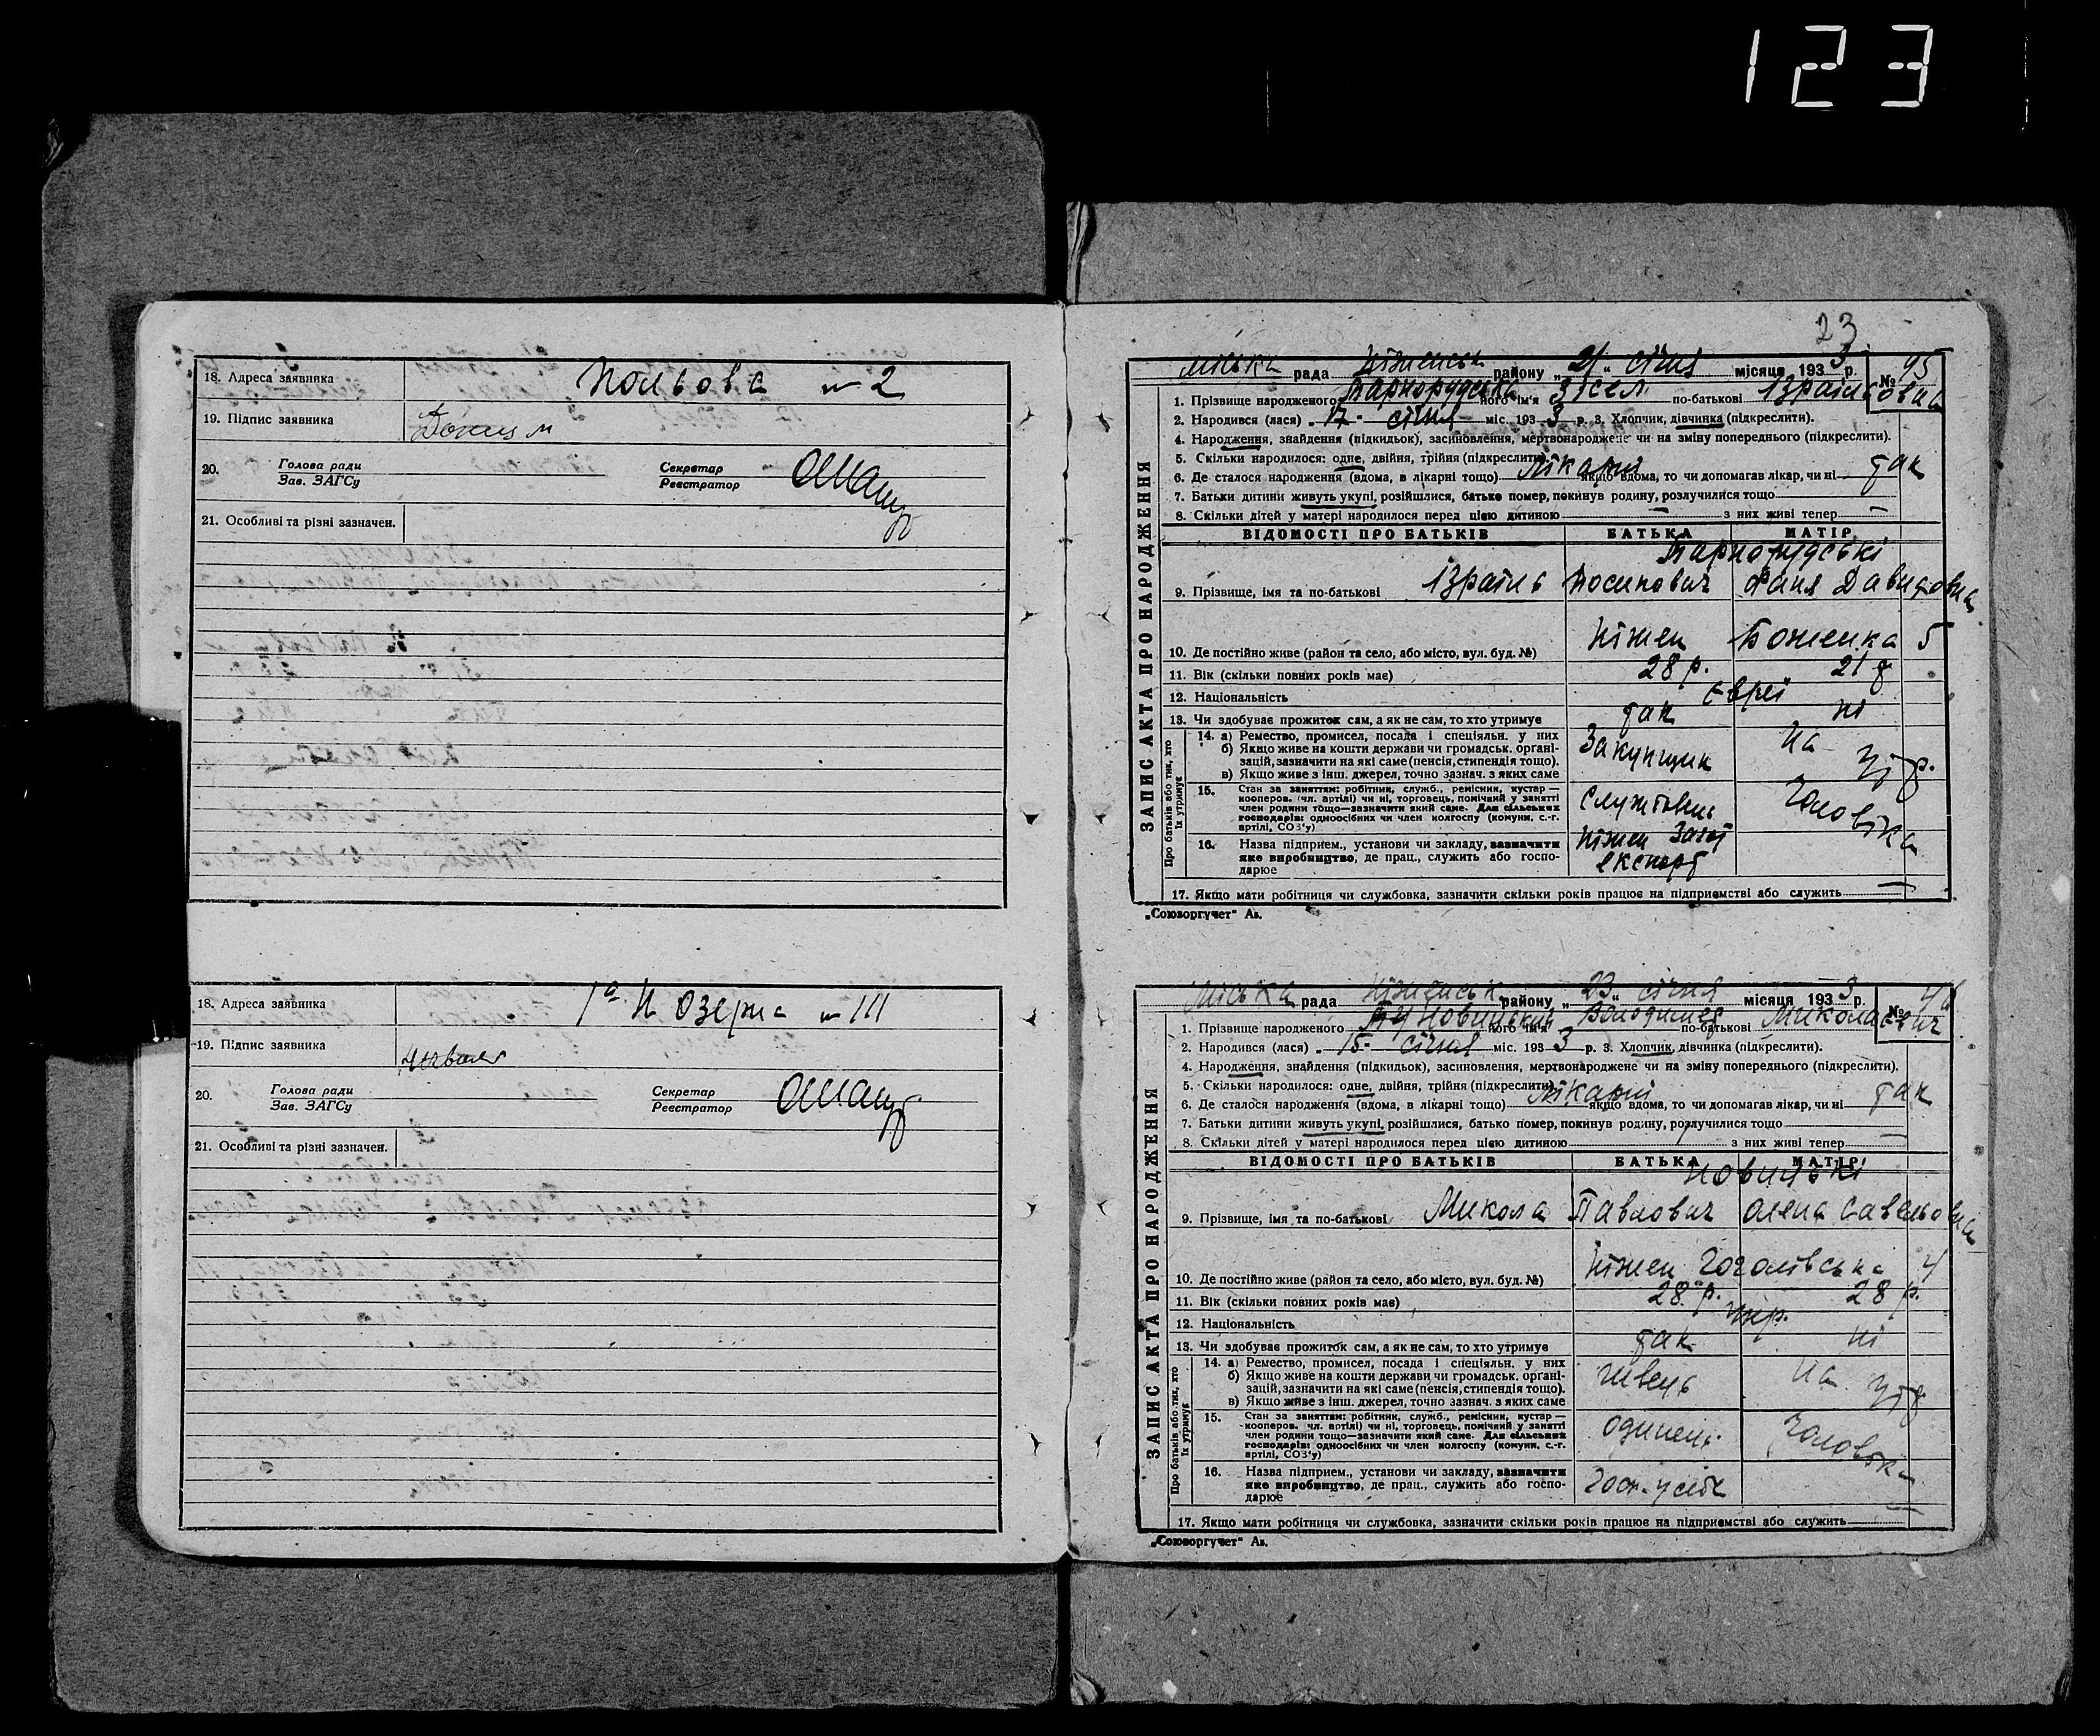 123
18. Адреса заявника Польова № 2
19. Підпис заявника
20. Голова ради Зав. ЗАГСу Секретар Реєстратор
21. Особливі та різні зазначен.
18. Адреса заявника 1а П Озерна № 111
19. Підпис заявника
20. Голова ради Зав. ЗАГСу Секретар Реєстратор
21. Особливі та різні зазначен.
23
міська рада Ніженськ району „21“ січня місяця 1933 р. № 45
1. Прізвище народженого Тарнорудська його ім'я по-батькові Ізраїльовна
2. Народився (лася) „17“ січня міс. 1933 р. 3. Хлопчик, дівчинка (підкреслити).
4. Народження, знайдення (підкидьок), засиновлення, мертвонароджене чи на зміну попереднього (підкреслити).
5. Скільки народилося: одне, двійня, трійня (підкреслити)
6. Де сталося народження (вдома, в лікарні тощо) лікарні якщо вдома, то чи допомагав лікар, чи ні так
7. Батьки дитини живуть укупі, розійшлися, батько помер, покинув родину, розлучилися тощо
8. Скільки дітей у матері народилося перед цією дитиною — з них живі тепер —
ЗАПИС АКТА ПРО НАРОДЖЕННЯ
ВІДОМОСТІ ПРО БАТЬКІВ БАТЬКА МАТІР
Тарнорудські
9. Прізвище, імя та по-батькові Ізраїль Йосипович Фаня Давидовна
10. Де постійно живе (район та село, або місто, вул. буд. №) Ніжен Боженка 5
11. Вік (скільки повних років має) 28 р. 21 р
12. Національність Євреї
13. Чи здобуває прожиток сам, а як не сам, то хто утримує так ні
Про батьків або тих, хто їх утримує
14. а) Ремество, промисел, посада і спеціяльн. у них
б) Якщо живе на кошти держави чи громадськ. органі-
зацій, зазначити на які саме (пенсія, стипендія тощо).
в) Якщо живе з інш. джерел, точно зазнач. з яких саме
Закупщик На утр.
15. Стан за заняттям: робітник, служб., ремісник, кустар—
кооперов. (чл. артілі) чи ні, торговець, помічний у занятті
член родини тощо—зазначити який саме. Для сільських
господарів: одноосібних чи член колгоспу (комуни, с.-г.
артілі, СОЗ'у)
Службовець Чоловіка
16. Назва підприєм., установи чи закладу, зазначити
яке виробництво, де прац., служить або госпо-
дарює
Ніжен
експорт
17. Якщо мати робітниця чи службовка, зазначити скільки років працює на підприємстві або служить —
„Союзоргучет“ Ав.
міська рада Ніженськ району „23“ січня місяця 1933 р. №
1. Прізвище народженого Новицький його ім'я Володимер по-батькові Миколаєвич
2. Народився (лася) „15“ січня міс. 1933 р. 3. Хлопчик, дівчинка (підкреслити).
4. Народження, знайдення (підкидьок), засиновлення, мертвонароджене чи на зміну попереднього (підкреслити).
5. Скільки народилося: одне, двійня, трійня (підкреслити)
6. Де сталося народження (вдома, в лікарні тощо) лікарні якщо вдома, то чи допомагав лікар, чи ні так
7. Батьки дитини живуть укупі, розійшлися, батько помер, покинув родину, розлучилися тощо
8. Скільки дітей у матері народилося перед цією дитиною з них живі тепер
ЗАПИС АКТА ПРО НАРОДЖЕННЯ
ВІДОМОСТІ ПРО БАТЬКІВ БАТЬКА МАТІР
Новицькі
9. Прізвище, імя та по-батькові Микола Павлович Олена Савельовна
10. Де постійно живе (район та село, або місто, вул. буд. №) Ніжен Гоголівська 4
11. Вік (скільки повних років має) 28 р. 28 р.
12. Національність укр.
13. Чи здобуває прожиток сам, а як не сам, то хто утримує так ні
Про батьків або тих, хто їх утримує
14. а) Ремество, промисел, посада і спеціяльн. у них
б) Якщо живе на кошти держави чи громадськ. органі-
зацій, зазначити на які саме (пенсія, стипендія тощо).
в) Якщо живе з інш. джерел, точно зазнач. з яких саме
швець На утр
15. Стан за заняттям: робітник, служб., ремісник, кустар—
кооперов. чл. артілі) чи ні, торговець, помічний у занятті
член родини тощо—зазначити який саме. Для сільських
господарів: одноосібних чи член колгоспу (комуни, с.-г.
артілі, СОЗ'у)
одинець Чоловіка
16. Назва підприєм., установи чи закладу, зазначити
яке виробництво, де прац., служить або госпо-
дарює
17. Якщо мати робітниця чи службовка, зазначити скільки років працює на підприємстві або служить
„Союзоргучет“ Ав.